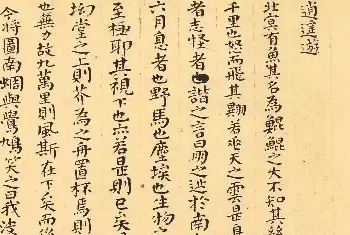 逍遙遊
北冥有魚其名為鯤鯤之大不知其幾
千里也怒而飛其翼若垂天之雲是鳥
者志怪者也諧之言曰鵬之徙於南
六月息者也野馬也塵埃也生物之
至極耶其視下也亦若是則已矣
坳堂之上則芥為之舟置杯焉則
也無力故九萬里則風斯在下矣而後
今將圖南蜩與鷽鳩笑之曰我決